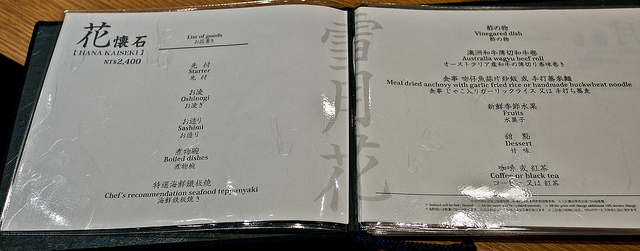 花懷石
【HANA KAISEKI】
NT$2,400
List of goods
お品書き
先 付
Starter
先 付
お凌
Oshinogi
お凌ぎ
お造り
Sashimi
お造り
煮物碗
Boiled dishes
煮物椀
特選海鮮鐵板燒
Chef's recommendation seafood teppanyaki
海鮮鉄板焼き
雪月花
酢の物
Vinegared dish
酢の物
澳洲和牛薄切和牛卷
Australia wagyu beef roll
オーストラリア産和牛の薄切り巻き
食事 吻仔魚蒜片炒飯 或 手打蕎麥麵
Meal dried anchovy with garlic fried rice or handmade buckwheat noodle
食事 じゃこ入りガーリックライス 又は 手打ち蕎麦
新鮮季節水果
Fruits
水菓子
甜 點
Dessert
甘 味
咖啡 或 紅茶
Coffee or black tea
コーヒー 又は 紅茶